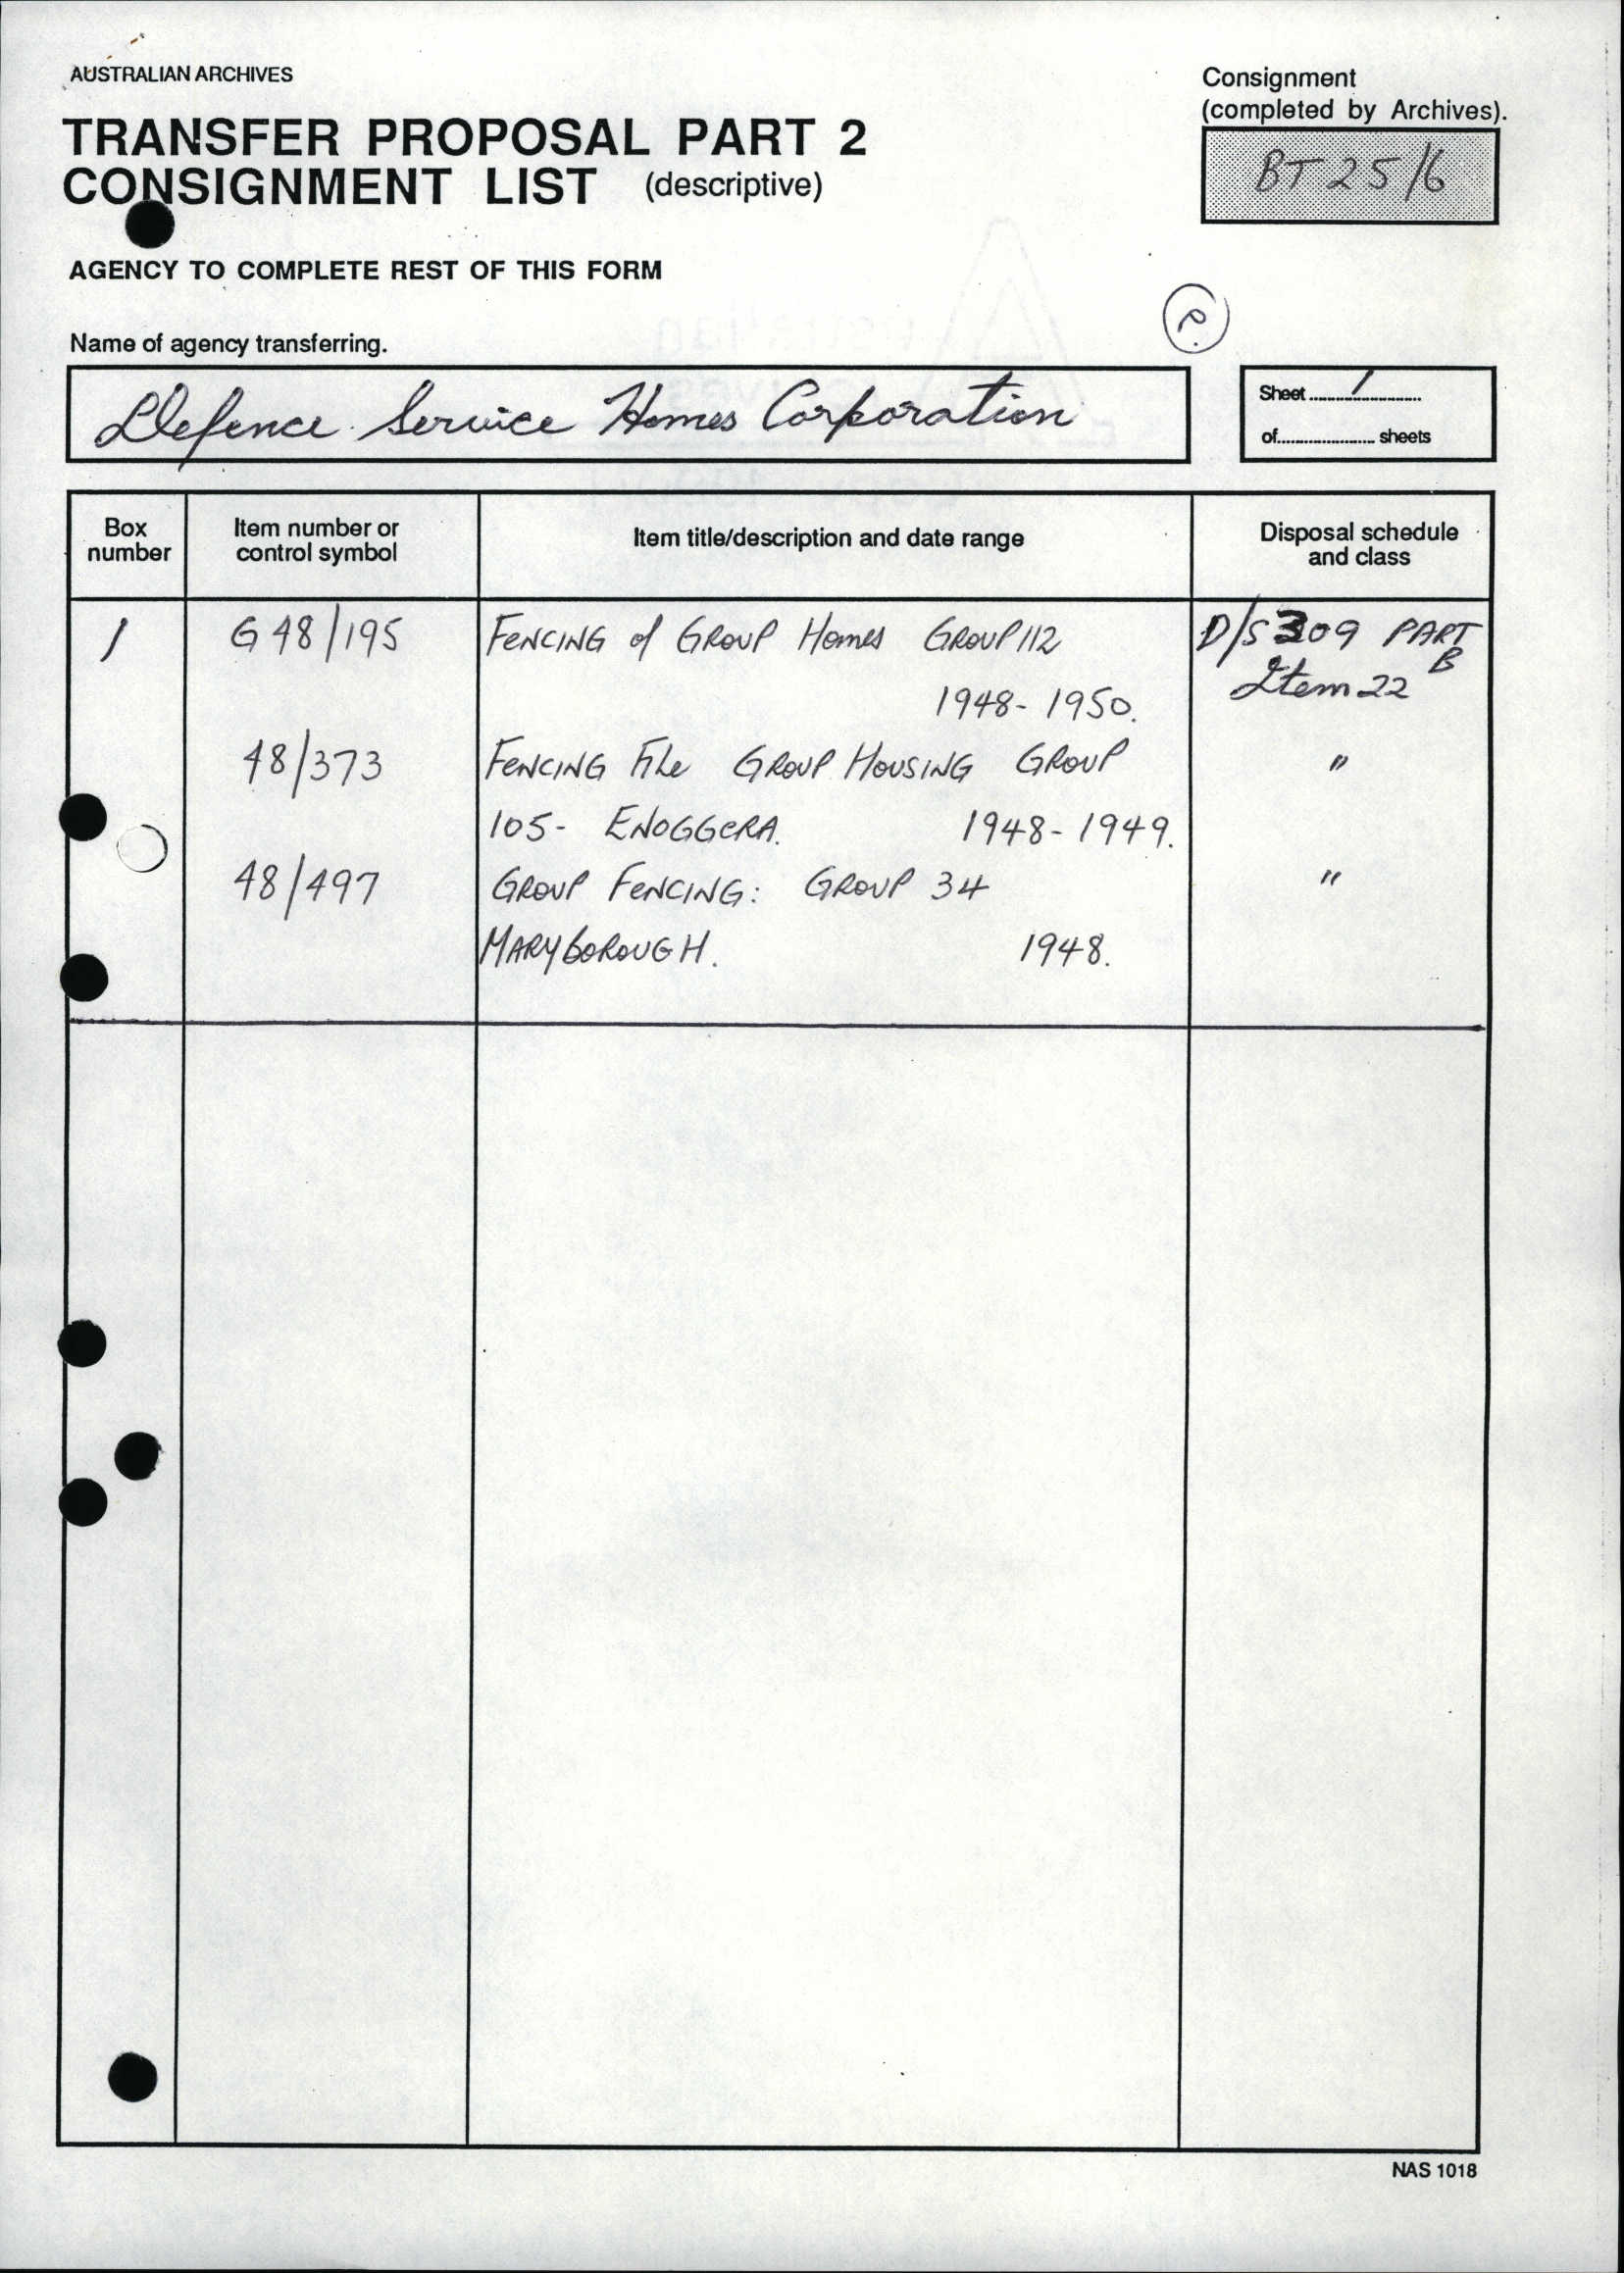 AUSTRALIAN ARCHIVES
TRANSFER PROPOSAL PART 2
CONSIGNMENT LIST (descriptive)
Consignment
(completed by Archives).
BT 25/6
AGENCY TO COMPLETE REST OF THIS FORM
P.
Name of agency transferring.
Defence Service Homes Corporation
Sheet 1
of sheets
Box number
Item number or control symbol
Item title/description and date range
Disposal schedule and class
1 G48/195 FENCING of GROUP Homes GROUP 112 D/S 309 PART B
1948-1950. Item 22
48/373 FENCING File GROUP HOUSING GROUP "
105- ENOGGERA. 1948-1949.
48/497 GROUP FENCING: GROUP 34 "
MARYBOROUGH. 1948.
NAS 1018